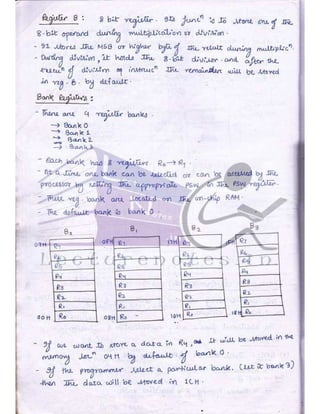 Register B : 8 bit register. Its funcⁿ is to store one of the
8-bit operand during multiplication or division.
- It stores the MSB or higher byte of the result during multiplicⁿ.
- During division, it holds the 8-bit divisor and after the
execuⁿ of division instrucⁿ the remainder will be stored
in reg. B. by default.
Bank Registers :
- There are 4 register banks.
→ Bank 0
→ Bank 1
→ Bank 2
→ Bank 3
- Each bank has 8 registers R0 → R7.
- At a time one bank can be selected or can be accessed by the
processor by setting the appropriate PSW in the PSW register.
- These reg. bank are located on the on-chip RAM.
- The default bank is bank 0.
B0 B1 B2 B3
07H R7 0FH R7 17H R7 R7
R6 R6 R6 R6
R5 R5 R5 R5
R4 R4 R4 R4
R3 R3 R3 R3
R2 R2 R2 R2
R1 R1 R1 R1
00H R0 08H R0 10H R0 18H R0
Lecturenotes.in
- If we want to store a data in R4, it will be stored in the
memory locⁿ 04H by default of bank 0.
- If the programmer select a particular bank. (Let it bank 3)
then the data will be stored in 1CH.